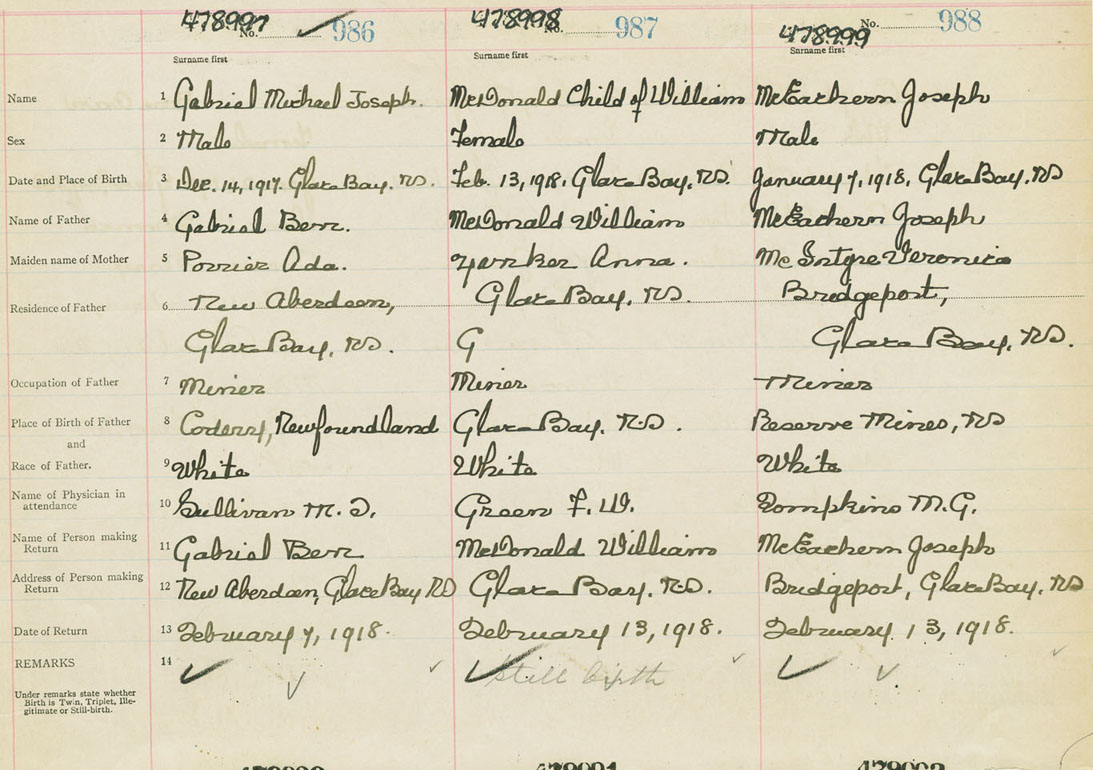 478997 478998 478999
No. 986 No. 987 No. 988
Surname first Surname first Surname first
Name 1 Gabriel Michael Joseph. McDonald Child of William McEachern Joseph
Sex 2 Male Female Male
Date and Place of Birth 3 Dec. 14, 1917. Glace Bay. NS. Feb. 13, 1918. Glace Bay. NS. January 7, 1918, Glace Bay. NS
Name of Father 4 Gabriel Benz. McDonald William McEachern Joseph
Maiden name of Mother 5 Poirier Ada. Yonker Anna. McIntyre Veronica
Residence of Father 6 New Aberdeen, Glace Bay, NS. Bridgeport,
Glace Bay, NS. G Glace Bay, NS.
Occupation of Father 7 Miner Miner Miner
Place of Birth of Father 8 Codery, Newfoundland Glace Bay. N.S. Reserve Mines, NS
and
Race of Father. 9 White White White
Name of Physician in attendance 10 Sullivan M. T. Green F. W. Tompkins M.G.
Name of Person making Return 11 Gabriel Benz McDonald William McEachern Joseph
Address of Person making Return 12 New Aberdeen, Glace Bay NS Glace Bay. N.S. Bridgeport, Glace Bay, NS
Date of Return 13 February 7, 1918. February 13, 1918. February 13, 1918.
REMARKS 14 Still birth
Under remarks state whether
Birth is Twin, Triplet, Ille-
gitimate or Still-birth.